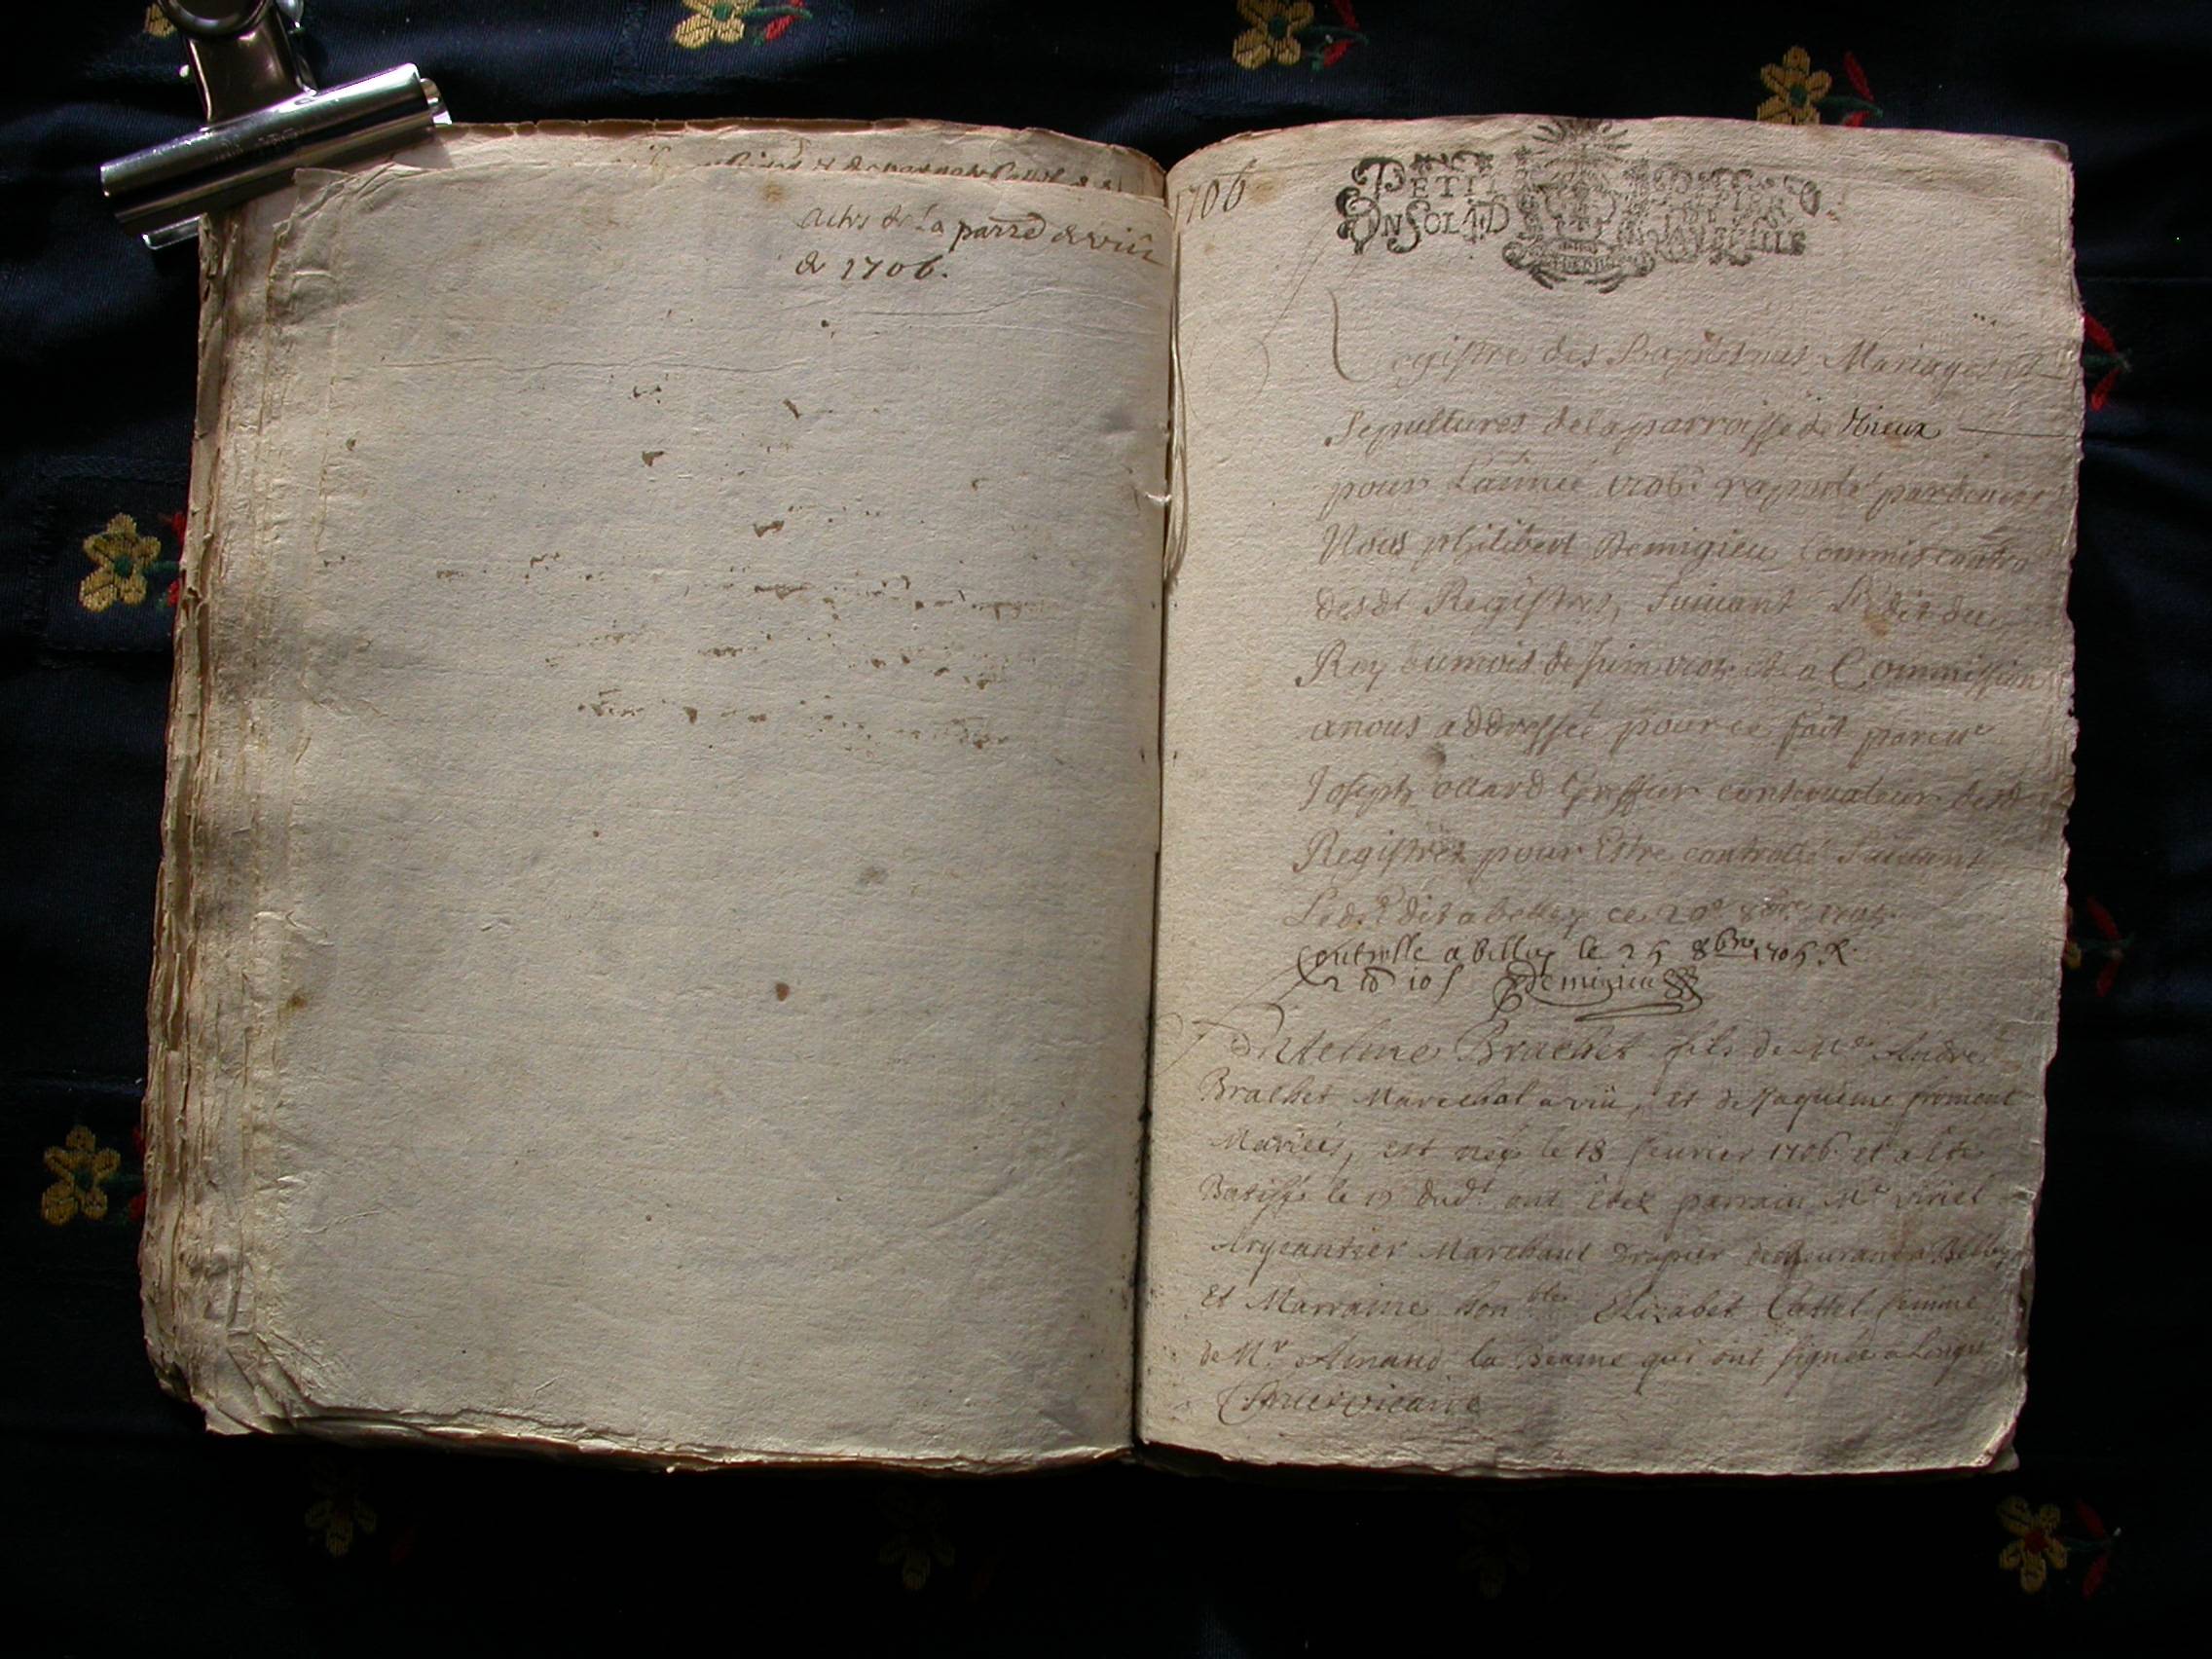 actes de la parr̃e de viü
de 1706.
1706
PETIT PAPIER
UN SOL IIII D LA FEUILLE
Registre des Baptesmes Mariages et
Sepultures de la parroisse de Vieux
pour L'année 1706
Nous philibert Demigieu Commis
desd Registres, suivant L'Edit du
Roy du mois de Juin et a Commission
a nous addressée pour ce fait par
Joseph ollard Greffier conservateur desd
Registres pour Estre controllé Suivant
Led. Edit a belley ce 20e 8bre 1705
Controlle a Belley le 25 8bre 1705 R
2 lb 10 s Demigieu
Antelme Brachet fils de Me André
Brachet Marechal a viü, et de Jaquéme froment
Mariés, est né le 18 feuvrier 1706 et a été
Batissé le 19 dudt ont étéz parrain Mr
Argeantier Marchant Drapier demeurant a Belley
et Marraine honble Elizabet Cattel femme
de Mr Amand la Beaume qui ont signée a Longe
vicaire